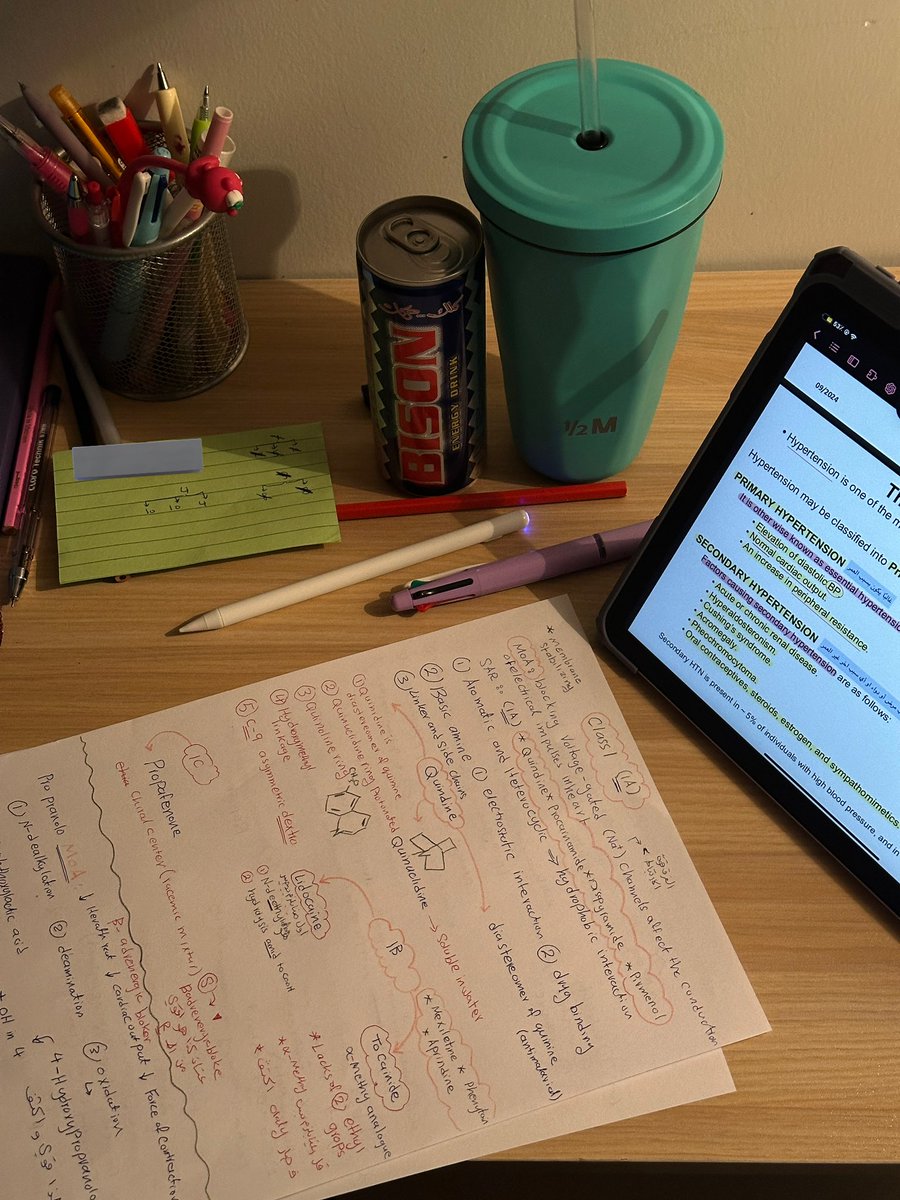 BISON
ENERGY DRINK
1/2 M
CLARO
53%
09/2024
• Hypertension is one of the m
Hypertension may be classified into Pr
PRIMARY HYPERTENSION
It is other wise known as essential hypertensio
• Elevation of diastolic BP
• Normal cardiac output.
• An increase in peripheral resistance.
SECONDARY HYPERTENSION
Factors causing secondary hypertension are as follows:
• Acute or chronic renal disease.
• Hyperaldosteronism.
• Cushing's syndrome.
• Acromegaly.
• Pheochromocytoma.
• Oral contraceptives, steroids, estrogen, and sympathomimetics.
Secondary HTN is present in ~ 5% of individuals with high blood pressure, and in
Class I (IA)
* Membrane stabilizing
MOA: blocking voltage gated (Na+) channels affect the conduction
of electrical impulses in heart
SAR: C(A) * Quindine * Procainamide * Disopyramide * Pirmenol
① Aromatic and Heterocyclic → hydrophobic interaction
② Basic amine ① electrostatic interaction ② drug binding
③ Linker and side chains
Quindine
diastereomer of quinine
(antimalarial)
① Quinidine is diastereomer of quinine
② Quinuclidine ring protonated
Quinuclidine → Soluble in water
③ Quinoline ring
④ Hydroxymethyl linkage
⑤ C-9 asymmetric dextro
IB
* Mexiletine * Phenyton
* Aprindine
Lidocaine
① N-dealkylation
② hydrolysis
Tocainide
α-Methyl analogue
* Lacks of ② ethyl grops
IC
Propafenone
Chiral center (racemic mixture) (S)
B-adrenergic bloker
Propranolo MOA: ↓ Heart rate ↓ cardiac output ↓ Force of contraction
① N-dealkylation ② deamination ③ oxidation
↳ 4-Hydroxypropranolo
* OH in 4